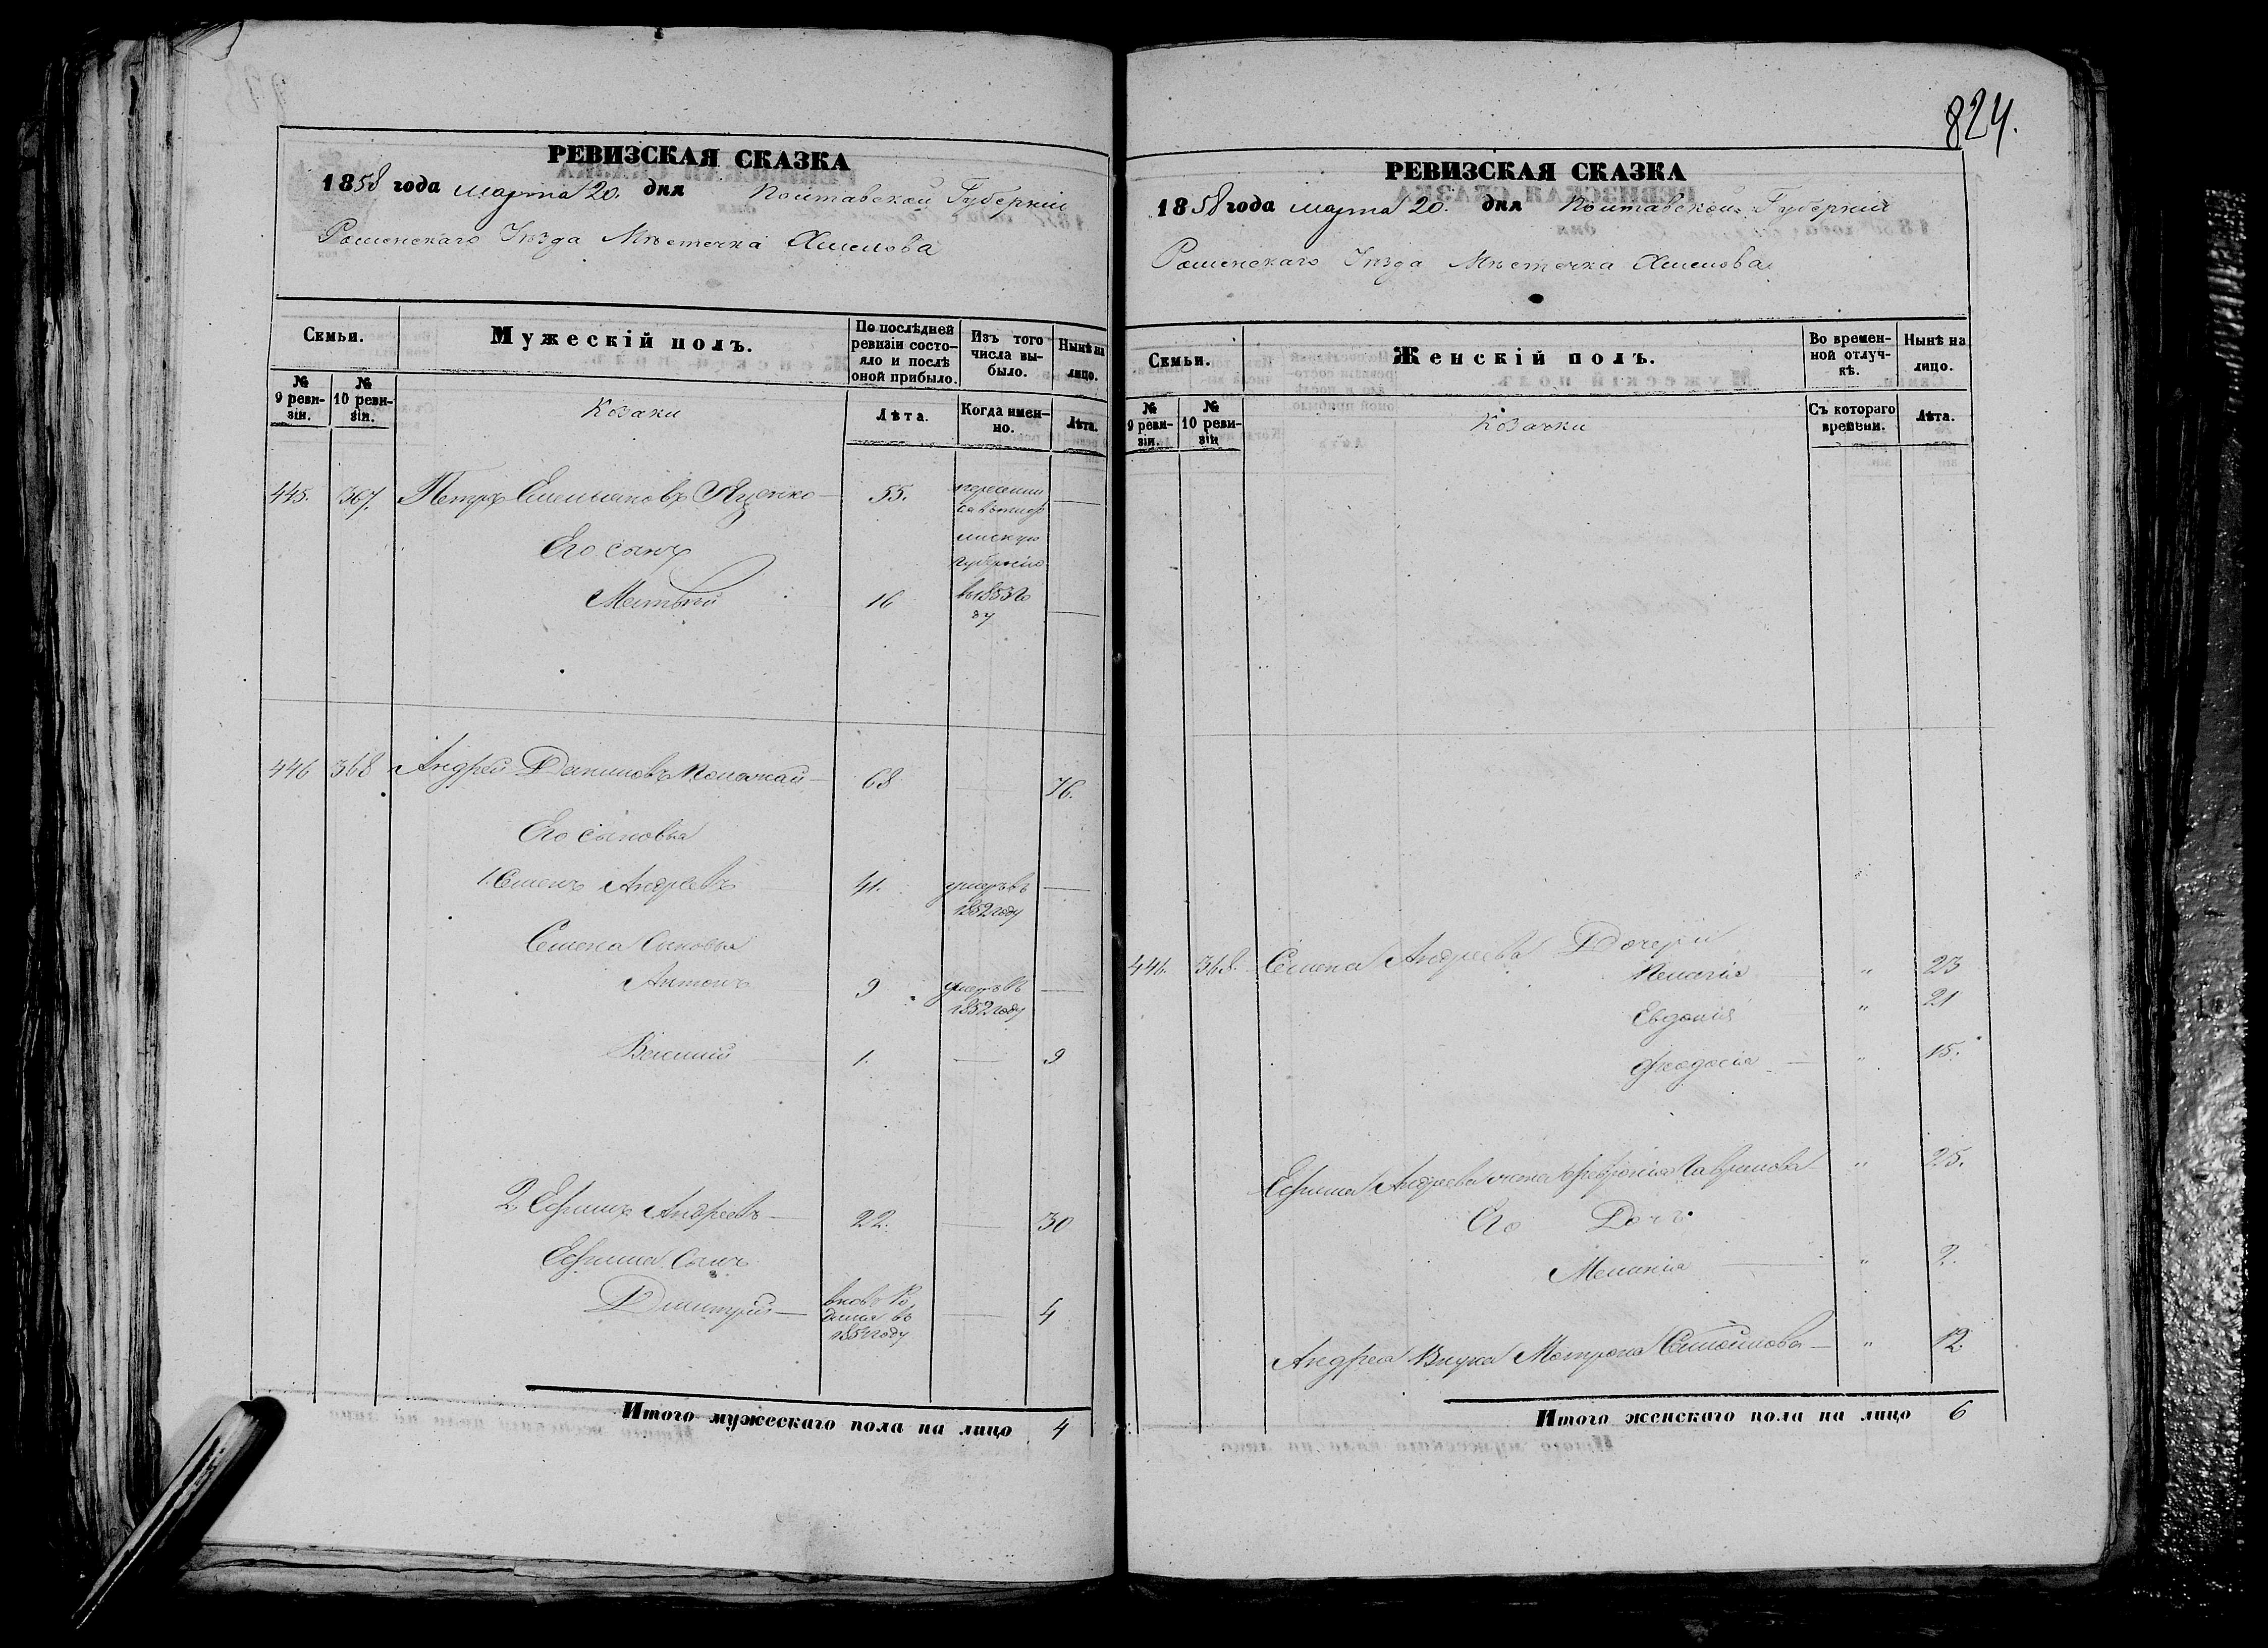 824.
РЕВИЗСКАЯ СКАЗКА
1858 года марта 20. дня Полтавской Губерніи
Роменскаго Уѣзда Мѣстечка Хмелова
Семьи.
Мужескій полъ.
По послѣдней ревизіи состояло и послѣ оной прибыло.
Изъ того числа выбыло.
Нынѣ на лицо.
№ 9 ревизіи.
№ 10 ревизіи.
Козаки
Лѣта.
Когда именно.
Лѣта.
445. 367. Петръ Емельяновъ Яценко 55.
губернію
Его сынъ
Матвѣй 16 въ 1853 го
ду
446 368 Андрей Даниловъ 68 76.
Его сыновья
1. Семенъ Андреевъ 41. умеръ въ
1852 году
Семена Сыновья
Антонъ 9 умеръ въ
1852 году
Василий 1. 9
2. Ефимъ Андреевъ 22. 30
Ефима Сынъ
Димитрій вновь ро 4
дился въ
1854 году
Итого мужескаго пола на лицо 4
РЕВИЗСКАЯ СКАЗКА
1858 года марта 20. дня Полтавской Губерніи
Роменскаго Уѣзда Мѣстечка Хмелова
Семьи.
Женскій полъ.
Во временной отлучкѣ.
Нынѣ на лицо.
№ 9 ревизіи.
№ 10 ревизіи
Козачки
Съ котораго времени.
Лѣта.
446. 368. Семена Андреева Дочери
Пелагія " 23
Евдокія " 21
Феодосія " 15.
Ефима Андреева жена Гаврилова " 25.
Его Дочь
Меланія " 2.
Андрея Внука Матрона " 12.
Итого женскаго пола на лицо 6